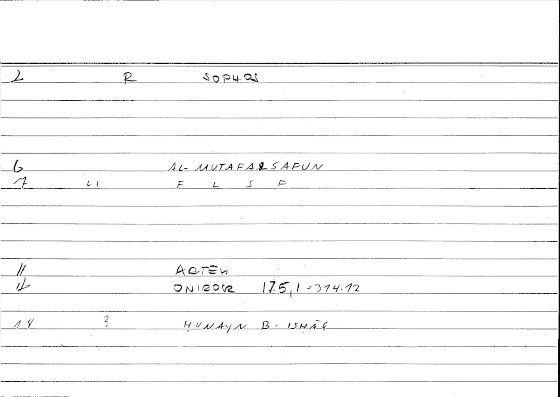 2 R SOPHOS
6 AL-MUTAFALSAFUN
7 LI F L S F
11 ARTEM
12 ONIROCR 175,1-314.12
14 ? HUNAYN B. ISHĀQ